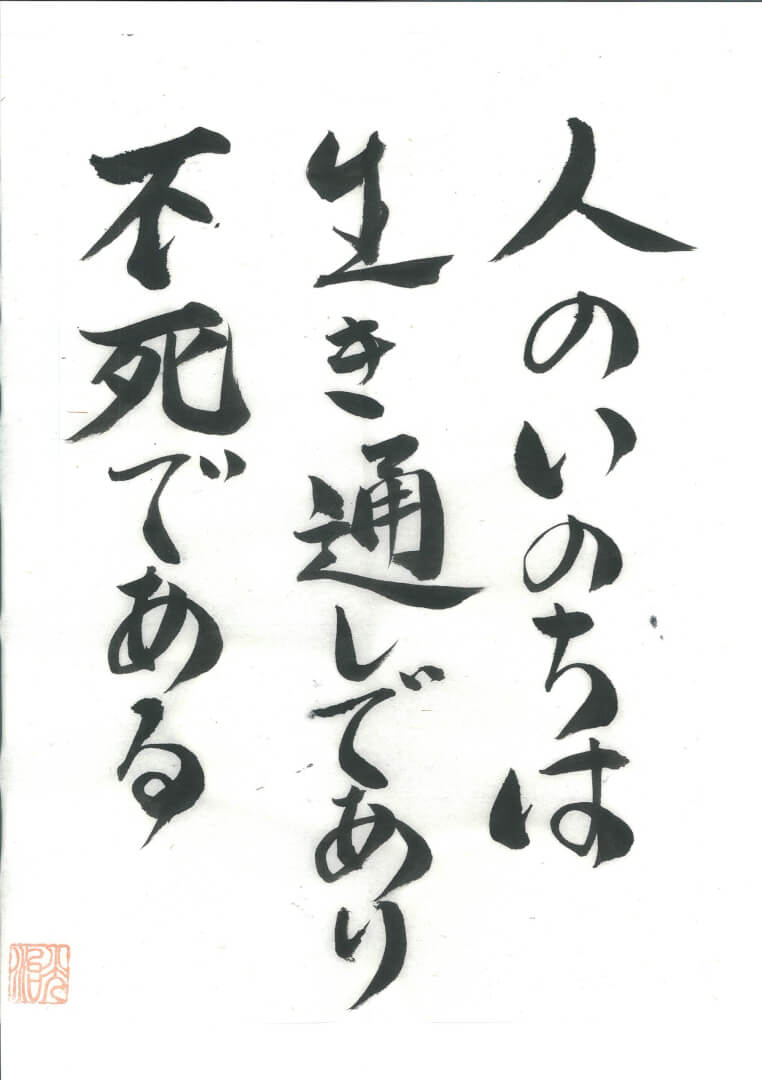 人のいのちは
生き通しであり
不死である